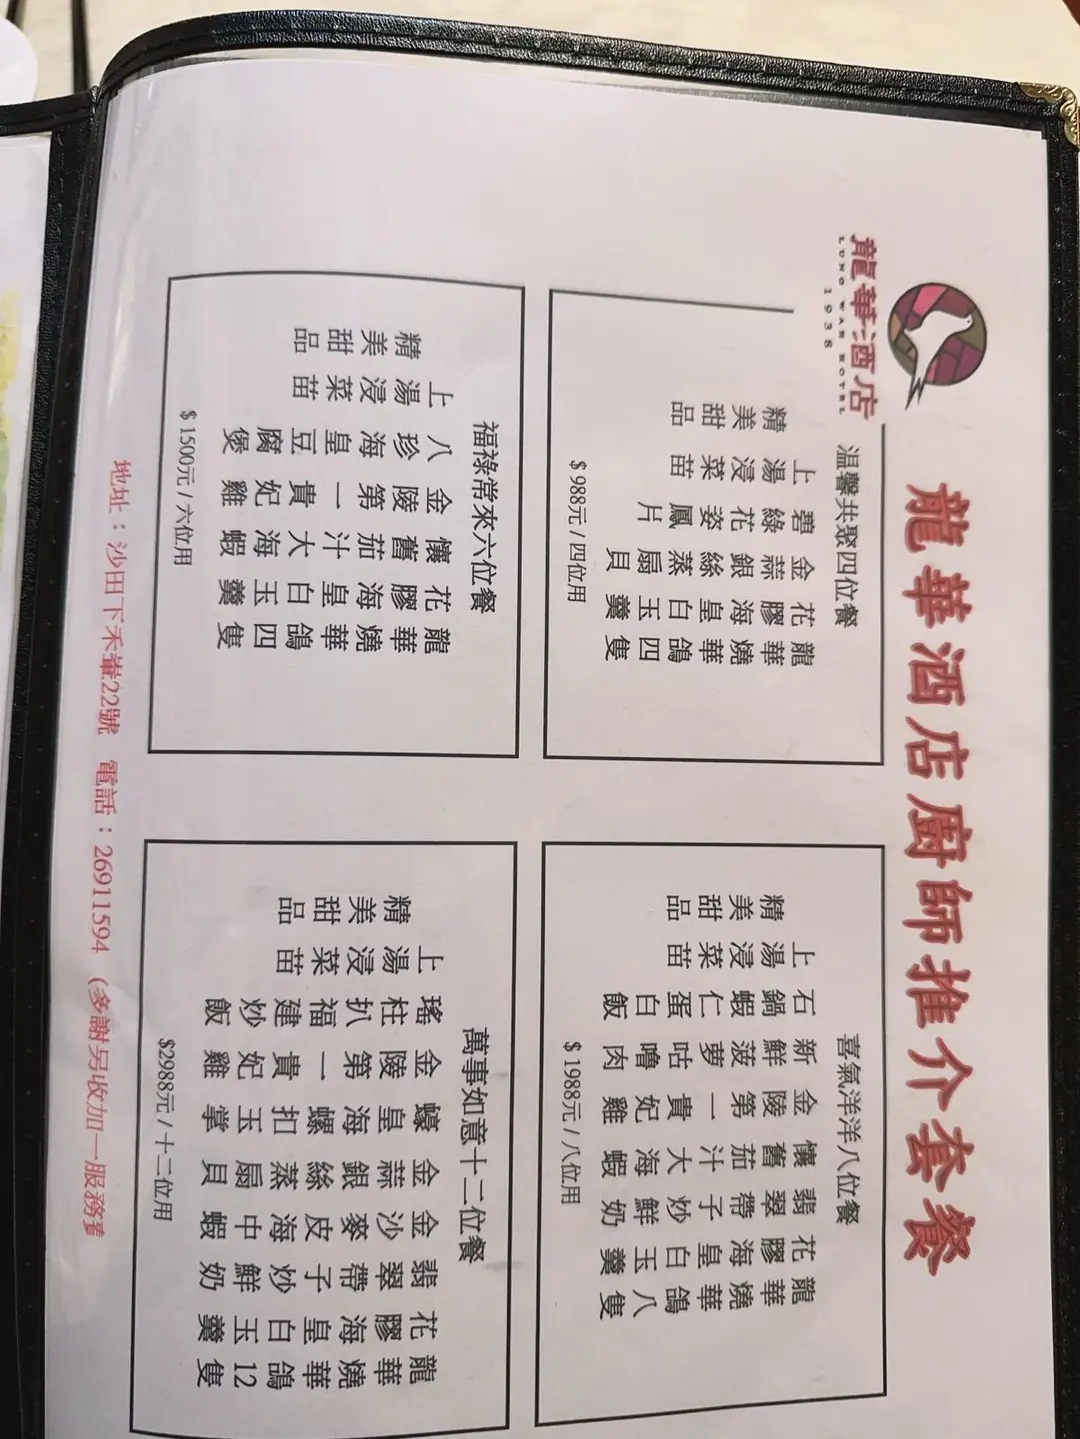 龍華酒店
LUNG WAH HOTEL
1938
龍華酒店廚師推介套餐
溫馨共聚四位餐
龍華燒華鴿四隻
花膠海皇白玉羹
金蒜銀絲蒸扇貝
碧綠花姿鳳片
上湯浸菜苗
精美甜品
$ 988元 / 四位用
喜氣洋洋八位餐
龍華燒華鴿八隻
花膠海皇白玉羹
翡翠帶子炒鮮奶
懷舊茄汁大海蝦
金陵第一貴妃雞
新鮮菠蘿咕嚕肉
石鍋蝦仁蛋白飯
上湯浸菜苗
精美甜品
$ 1988元 / 八位用
福祿常來六位餐
龍華燒華鴿四隻
花膠海皇白玉羹
懷舊茄汁大海蝦
金陵第一貴妃雞
八珍海皇豆腐煲
上湯浸菜苗
精美甜品
$ 1500元 / 六位用
萬事如意十二位餐
龍華燒華鴿12隻
花膠海皇白玉羹
翡翠帶子炒鮮奶
金沙麥皮海中蝦
金蒜銀絲蒸扇貝
蠔皇海螺扣玉掌
金陵第一貴妃雞
瑤柱扒福建炒飯
上湯浸菜苗
精美甜品
$2988元 / 十二位用
地址：沙田下禾輋22號 電話：26911594 (多謝另收加一服務